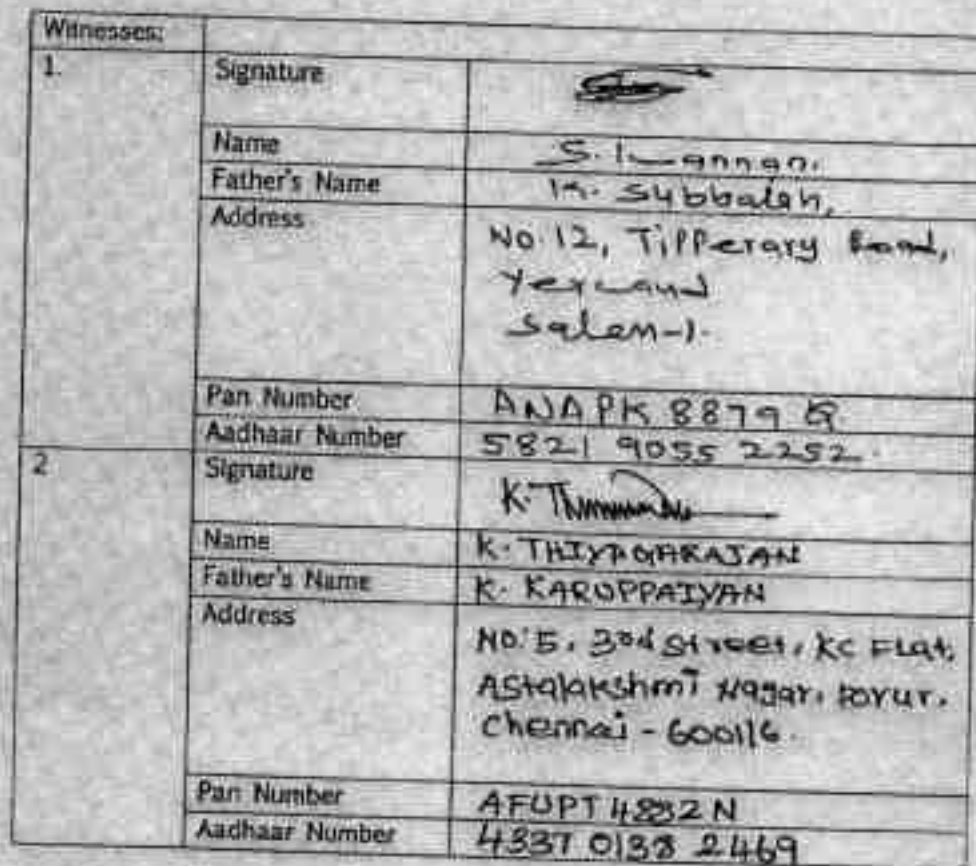 Witnesses:
1.
Signature
Name S. Kannan.
Father's Name K. Subbaiah,
Address No.12, Tipperary Road,
Yercaud
Salem-1.
Pan Number ANAPK 8879
Aadhaar Number 5821 9055 2252.
2
Signature K.
Name K. THIYAGARAJAN
Father's Name K. KARUPPAIYAN
Address NO: 5, 3rd Street, KC Flat,
Astalakshmi Nagar, Porur.
Chennai - 600116.
Pan Number AFUPT 4832 N
Aadhaar Number 4337 0138 2469